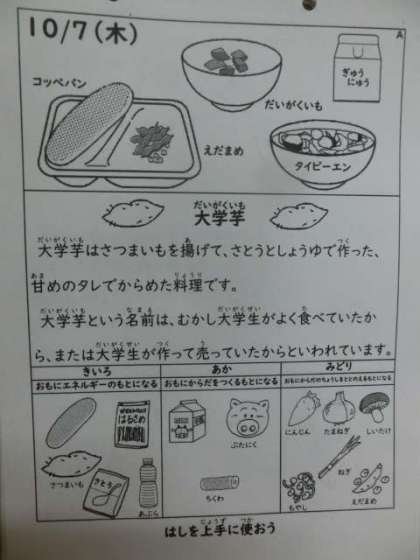 10/7(木)
A
コッペパン
だいがくいも
ぎゅう
にゅう
えだまめ
タイピーエン
だいがくいも
大学芋
だいがくいも あ つく
大学芋はさつまいもを揚げて、さとうとしょうゆで作った、
あま りょうり
甘めのタレでからめた料理です。
だいがくいも なまえ だいがくせい た
大学芋という名前は、むかし大学生がよく食べていたか
だいがくせい つく う
ら、または大学生が作って売っていたからといわれています。
きいろ あか みどり
おもにエネルギーのもとになる おもにからだをつくるもとになる おもにからだのちょうしをととのえるもとになる
はるさめ
ぶたにく
にんじん たまねぎ しいたけ
さつまいも
さとう
あぶら
ちくわ
もやし
ねぎ
えだまめ
じょうず つか
はしを上手に使おう